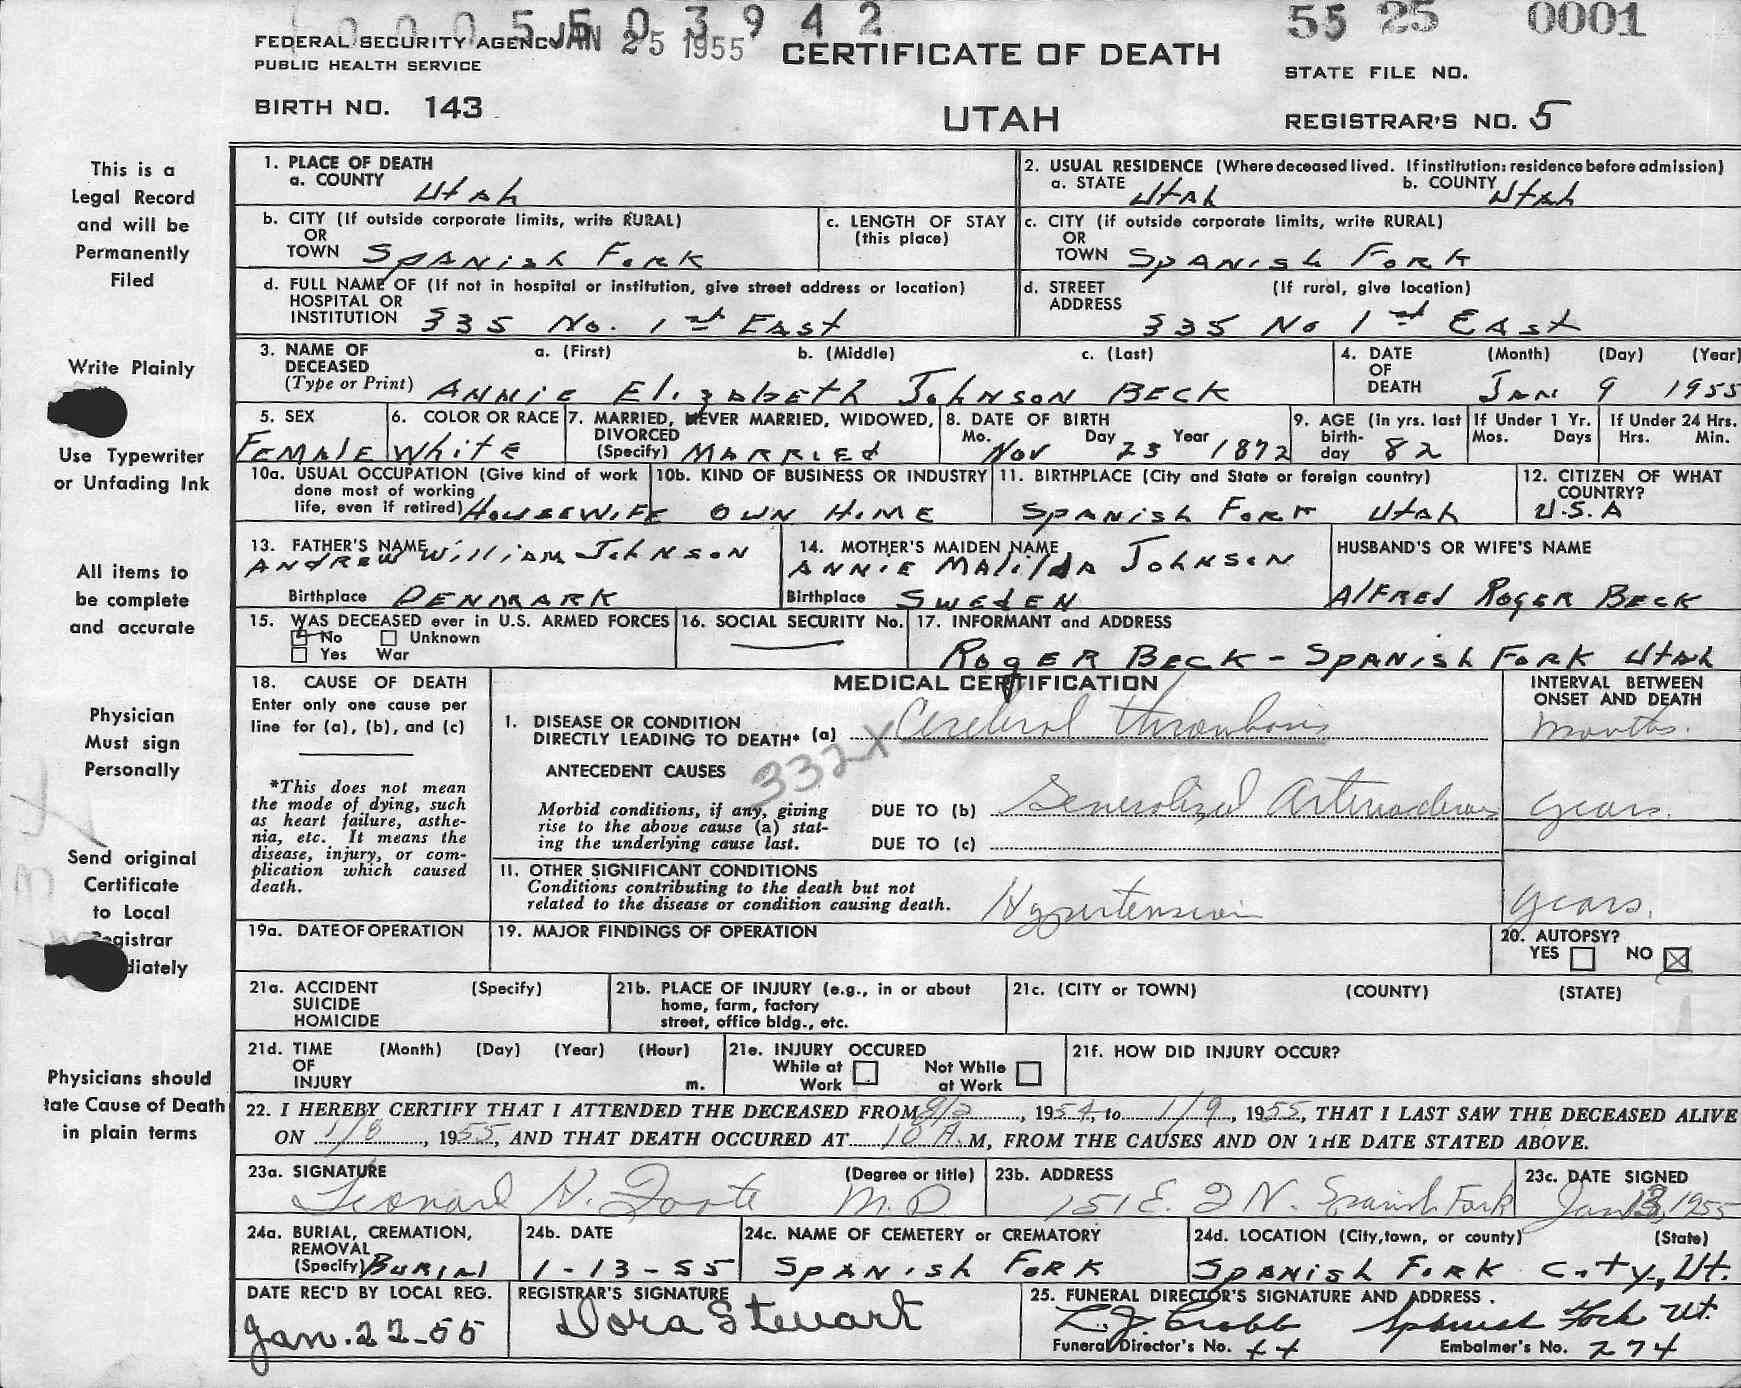 0005503942
55 25 0001
JAN 25 1955
FEDERAL SECURITY AGENCY
PUBLIC HEALTH SERVICE
CERTIFICATE OF DEATH
STATE FILE NO.
BIRTH NO. 143
UTAH
REGISTRAR'S NO. 5
This is a
Legal Record
and will be
Permanently
Filed
Write Plainly
Use Typewriter
or Unfading Ink
All items to
be complete
and accurate
Physician
Must sign
Personally
Send original
Certificate
to Local
gistrar
diately
Physicians should
tate Cause of Death
in plain terms
1. PLACE OF DEATH
a. COUNTY Utah
2. USUAL RESIDENCE (Where deceased lived. If institution: residence before admission)
a. STATE Utah b. COUNTY Utah
b. CITY (If outside corporate limits, write RURAL)
OR
TOWN Spanish Fork
c. LENGTH OF STAY
(this place)
c. CITY (if outside corporate limits, write RURAL)
OR
TOWN Spanish Fork
d. FULL NAME OF (If not in hospital or institution, give street address or location)
HOSPITAL OR
INSTITUTION 335 No. 1st East
d. STREET (If rural, give location)
ADDRESS
335 No 1st East
3. NAME OF a. (First) b. (Middle) c. (Last)
DECEASED
(Type or Print) Annie Elizabeth Johnson Beck
4. DATE (Month) (Day) (Year)
OF
DEATH Jan 9 1955
5. SEX
Female
6. COLOR OR RACE
White
7. MARRIED, NEVER MARRIED, WIDOWED,
DIVORCED
(Specify) Married
8. DATE OF BIRTH
Mo. Nov Day 23 Year 1872
9. AGE (In yrs. last
birth-
day 82
If Under 1 Yr.
Mos. Days
If Under 24 Hrs.
Hrs. Min.
10a. USUAL OCCUPATION (Give kind of work
done most of working
life, even if retired) Housewife
10b. KIND OF BUSINESS OR INDUSTRY
Own Home
11. BIRTHPLACE (City and State or foreign country)
Spanish Fork Utah
12. CITIZEN OF WHAT
COUNTRY?
U.S.A
13. FATHER'S NAME
Andrew William Johnson
Birthplace Denmark
14. MOTHER'S MAIDEN NAME
Annie Malilda Johnson
Birthplace Sweden
HUSBAND'S OR WIFE'S NAME
Alfred Roger Beck
15. WAS DECEASED ever in U.S. ARMED FORCES
No Unknown
Yes War
16. SOCIAL SECURITY No.
17. INFORMANT and ADDRESS
Roger Beck - Spanish Fork Utah
18. CAUSE OF DEATH
Enter only one cause per
line for (a), (b), and (c)
*This does not mean
the mode of dying, such
as heart failure, asthe-
nia, etc. It means the
disease, injury, or com-
plication which caused
death.
MEDICAL CERTIFICATION
INTERVAL BETWEEN
ONSET AND DEATH
1. DISEASE OR CONDITION
DIRECTLY LEADING TO DEATH* (a) Cerebral thrombosis months.
332X
ANTECEDENT CAUSES
Morbid conditions, if any, giving
rise to the above cause (a) stat-
ing the underlying cause last.
DUE TO (b) Generalized years.
DUE TO (c)
11. OTHER SIGNIFICANT CONDITIONS
Conditions contributing to the death but not
related to the disease or condition causing death.
Hypertension years.
19a. DATE OF OPERATION
19. MAJOR FINDINGS OF OPERATION
20. AUTOPSY?
YES NO
21a. ACCIDENT (Specify)
SUICIDE
HOMICIDE
21b. PLACE OF INJURY (e.g., in or about
home, farm, factory
street, office bldg., etc.
21c. (CITY or TOWN) (COUNTY) (STATE)
21d. TIME (Month) (Day) (Year) (Hour)
OF
INJURY m.
21e. INJURY OCCURED
While at Not While
Work at Work
21f. HOW DID INJURY OCCUR?
22. I HEREBY CERTIFY THAT I ATTENDED THE DECEASED FROM 9/2, 1954, to 1/9, 1955, THAT I LAST SAW THE DECEASED ALIVE
ON 1/8, 1955, AND THAT DEATH OCCURED AT 10 A.M, FROM THE CAUSES AND ON THE DATE STATED ABOVE.
23a. SIGNATURE (Degree or title)
Leonard H. Foote M.D
23b. ADDRESS
151 E. 2 N. Spanish Fork
23c. DATE SIGNED
Jan 13, 1955
24a. BURIAL, CREMATION,
REMOVAL
(Specify) Burial
24b. DATE
1-13-55
24c. NAME OF CEMETERY or CREMATORY
Spanish Fork
24d. LOCATION (City, town, or county) (State)
Spanish Fork City, Ut.
DATE REC'D BY LOCAL REG.
Jan. 22-55
REGISTRAR'S SIGNATURE
Dora Stewart
25. FUNERAL DIRECTOR'S SIGNATURE AND ADDRESS.
Spanish Fork Ut.
Funeral Director's No. 44 Embalmer's No. 274